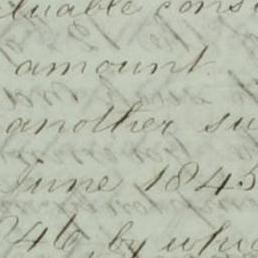 valuable cons
amount
another su
June 1845
846, by whic